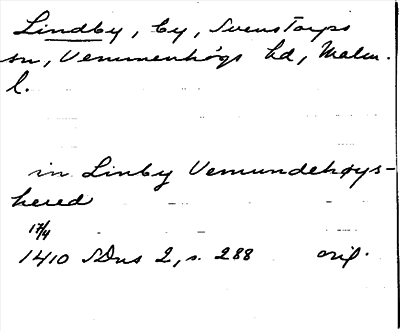 Lindby, by, Svenstorps
sn, Vemmenhögs hd, Malm.
l.
in Linby Vemundehøys-
hered
17/4
1410 SDns 2, s. 288 orig.